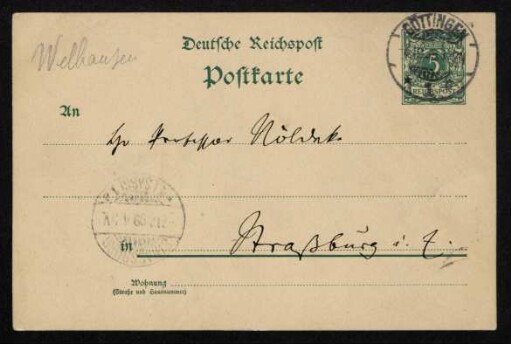 Welhausen
GÖTTINGEN
Deutsche Reichspost
Postkarte
5
An
Hr Professor Nöldeke
in Straßburg i. E.
Wohnung
(Straße und Hausnummer)